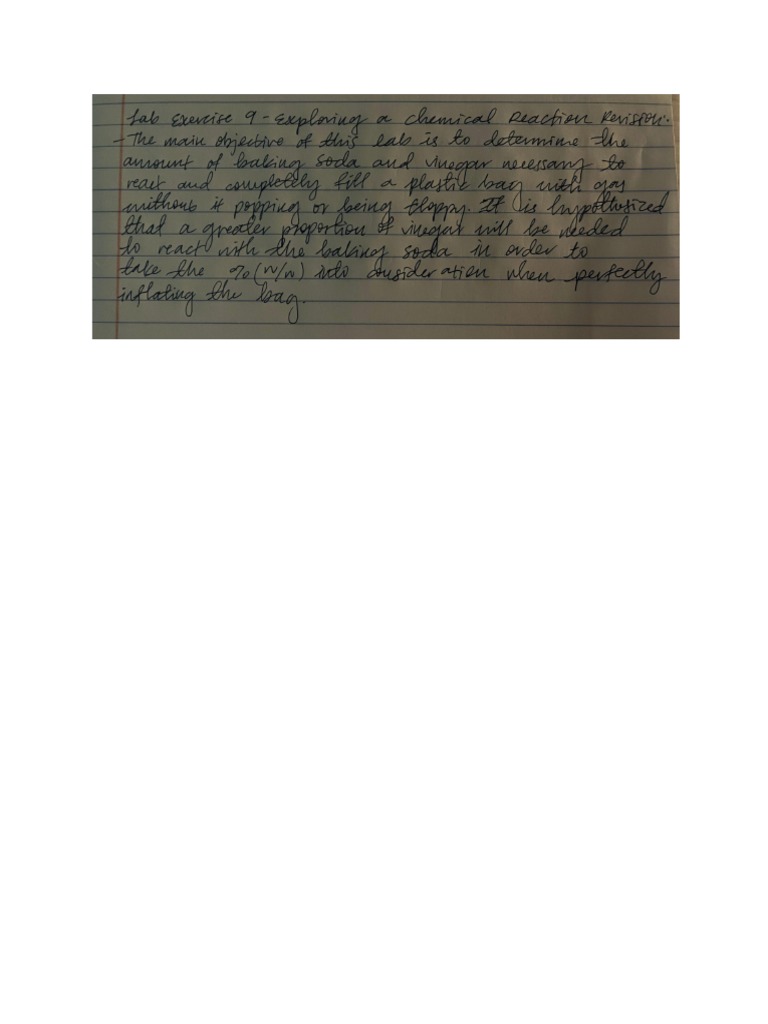 Lab Exercise 9 - Exploring a Chemical Reaction Revision.
- The main objective of this lab is to determine the
amount of baking soda and vinegar necessary to
react and completely fill a plastic bag with gas
without it popping or being floppy. It is hypothesized
that a greater proportion of vinegar will be needed
to react with the baking soda in order to
take the % (w/w) into consideration when perfectly
inflating the bag.